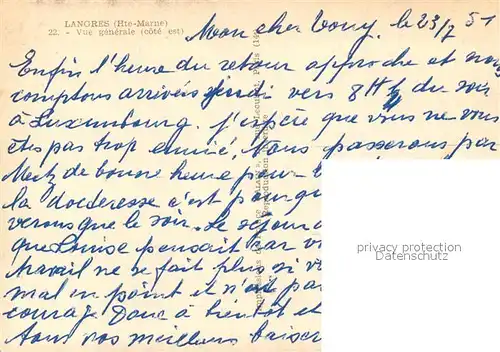 LANGRES (Hte-Marne)
22. - Vue générale (côté est)
Mon cher Tony, le 23/7 51
Enfin l'heure du retour approche et nous
comptons arriver jeudi vers 8H ½ du soir
à Luxembourg. J'espère que vous ne vous
êtes pas trop ennuié. Nous passerons par
Metz de bonne heure pour
la doctoresse c'est pourqu
verons que le soir. Le séjour
que Louise pensait car v
travail ne se fait plus si v
mal en point et n'est pa
courage. Donc à bientôt et
tous nos meilleurs baiser
privacy protection
Datenschutz